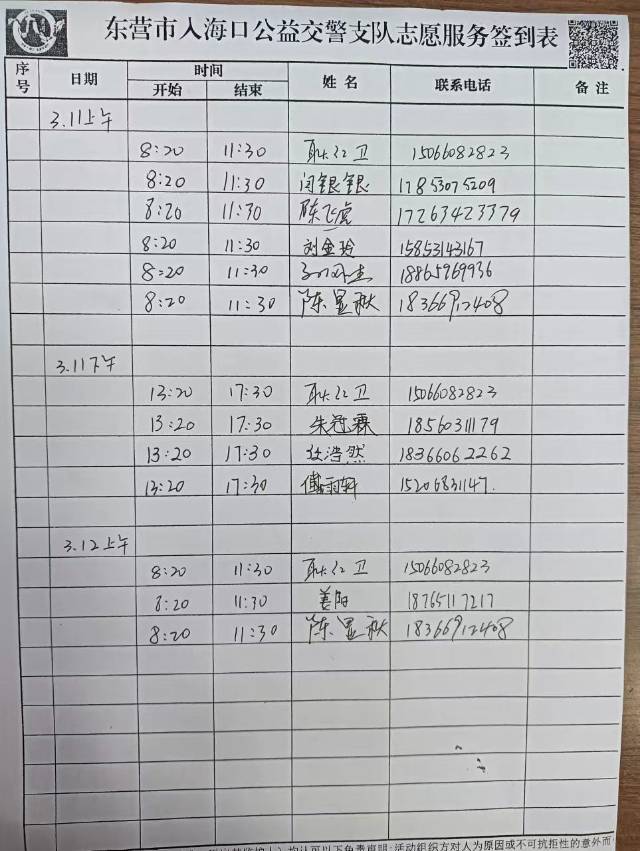 东营市入海口公益交警支队志愿服务签到表
序号 日期 时间 姓名 联系电话 备注
开始 结束
3.11上午
8:20 11:30 耿红卫 15066082823
8:20 11:30 闫银银 17853075209
8:20 11:30 陈飞虎 17263423379
8:20 11:30 刘金玲 15853143167
8:20 11:30 18865969936
8:20 11:30 陈显秋 18366912408
3.11下午
13:20 17:30 耿红卫 15066082823
13:20 17:30 朱冠霖 18560311179
13:20 17:30 任浩然 18366062262
13:20 17:30 傅雨轩 15206831147.
3.12上午
8:20 11:30 耿红卫 15066082823
8:20 11:30 姜阳 18765117217
8:20 11:30 陈显秋 18366912408
均认可以下免责声明:活动组织方对人为原因或不可抗拒性的意外而